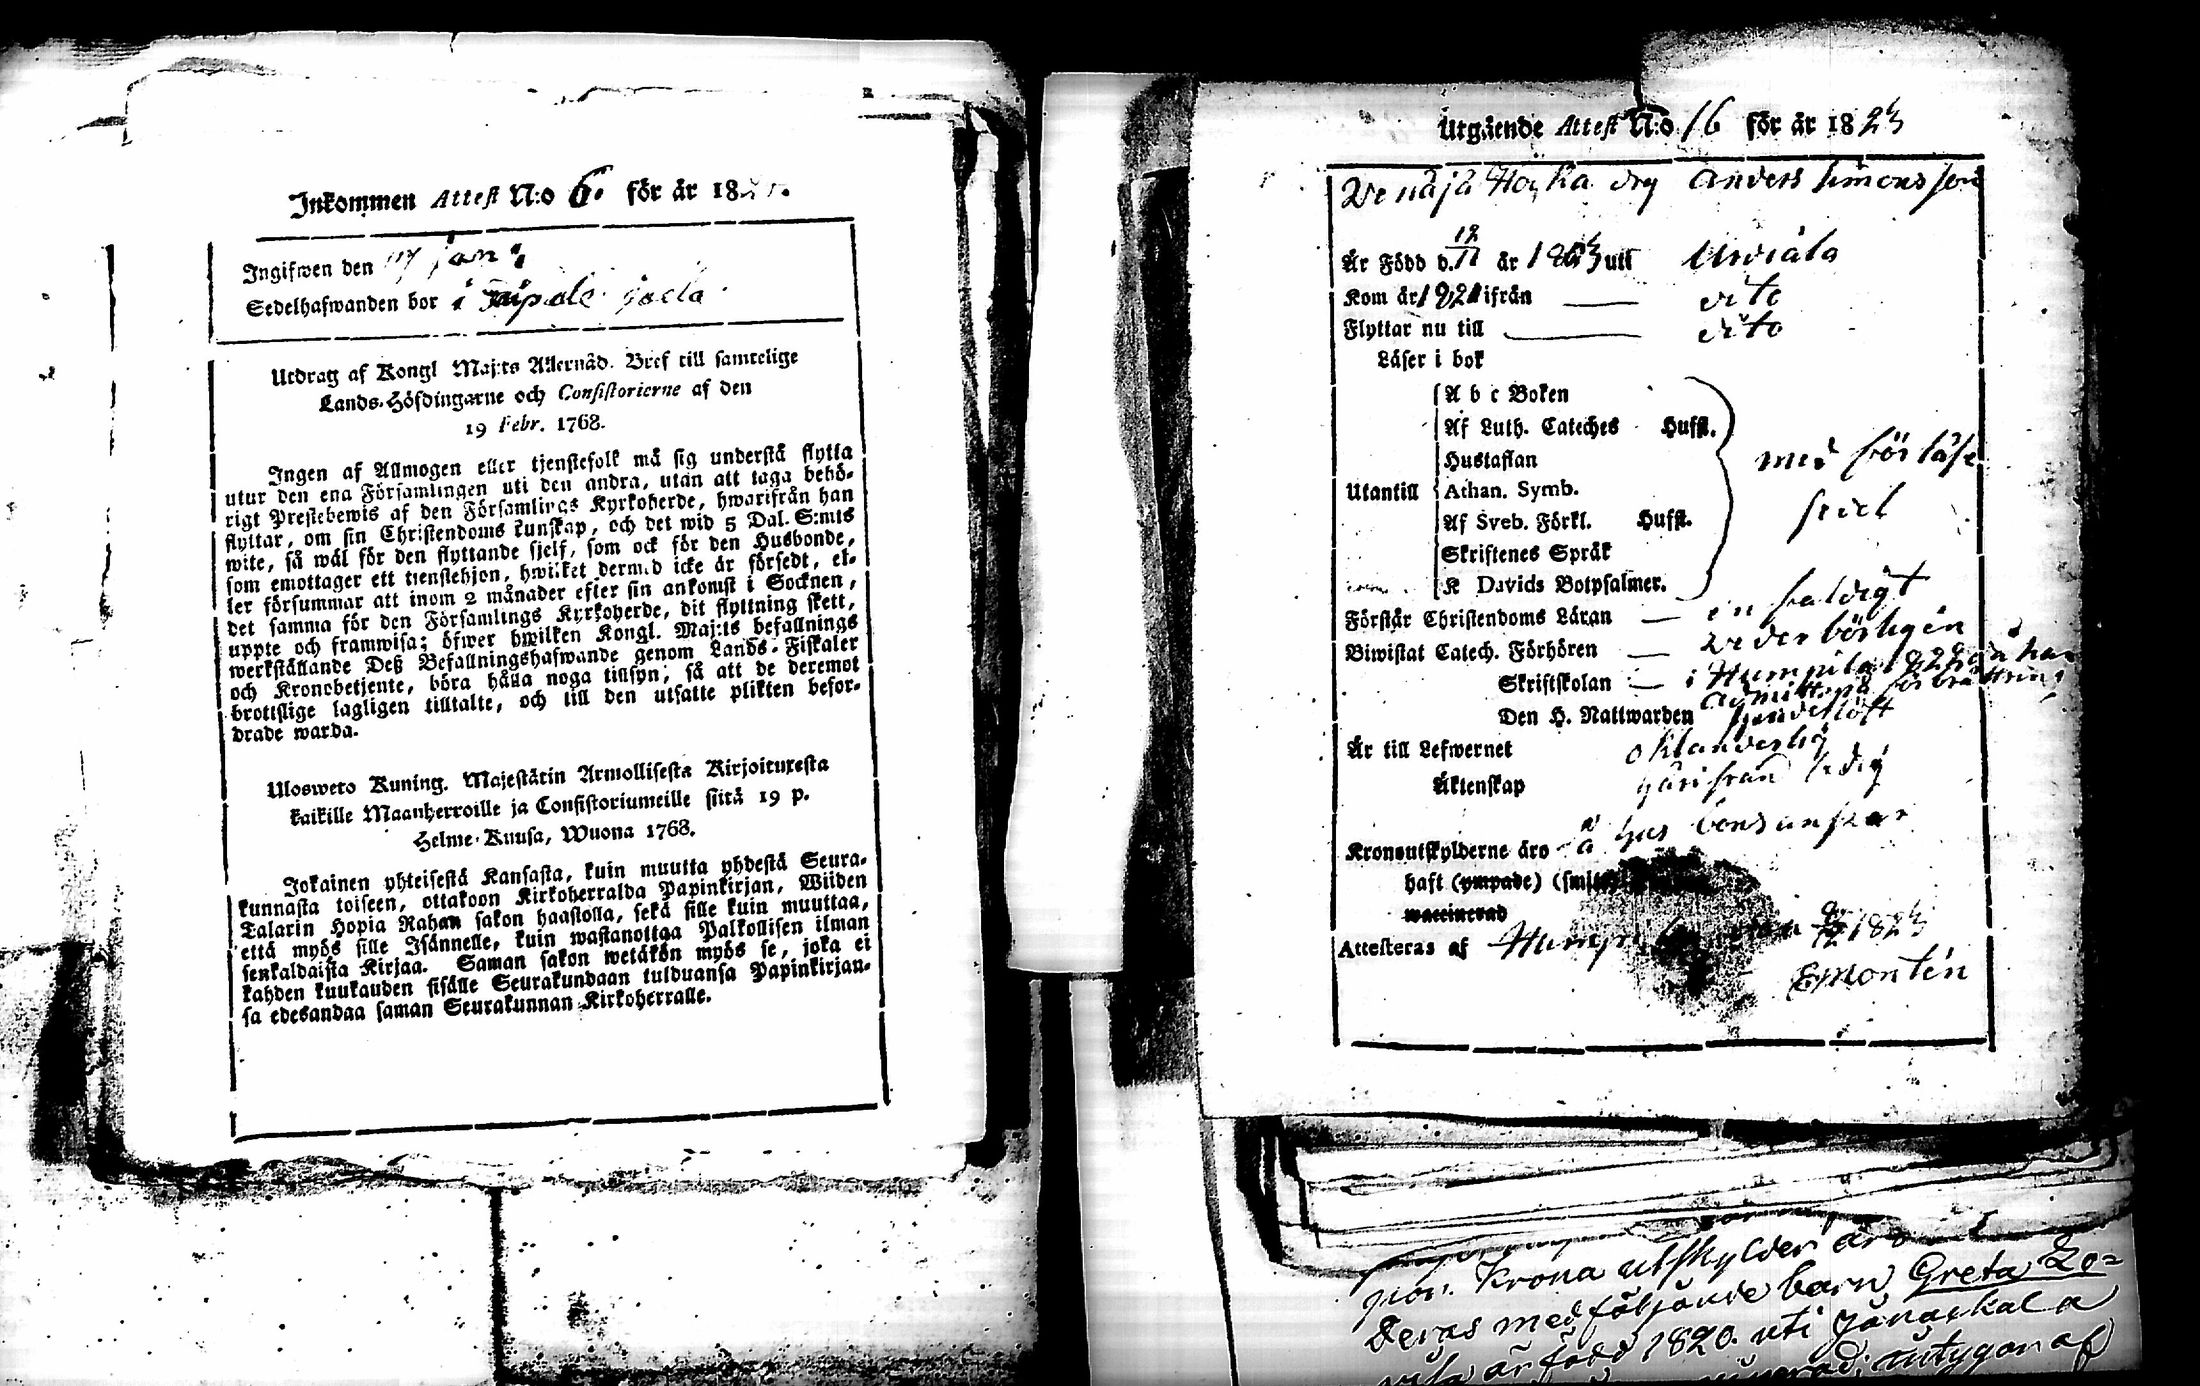 Inkommen Attest N:o 6. för år 182
Ingifwen den 17 jan:
Sedelhafwanden bor i
Utdrag af Kongl Maj:ts Allernåd. Bref till samtelige
Lands-Höfdingarne och Consistorierne af den
19 Febr. 1768.
Ingen af Allmogen eller tjenstefolk må sig understå flytta
utur den ena Församlingen uti den andra, utan att taga behö-
rigt Prestebewis af den Församlings Kyrkoherde, hwarifrån han
flyttar, om sin Christendoms kunskap, och det wid 5 Dal. S:mts
wite, så wäl för den flyttande sjelf, som ock för den Husbonde,
som emottager ett tienstehjon, hwilket dermed icke är försedt, el-
ler försummar att inom 2 månader efter sin ankomst i Socknen,
det samma för den Församlings Kyrkoherde, dit flyttning skett,
uppte och framwisa; öfwer hwilken Kongl. Maj:ts befallnings
werkställande Deß Befallningshafwande genom Lands-Fiskaler
och Kronobetjente, böra hålla noga tillsyn; så att de deremot
brottslige lagligen tilltalte, och till den utsatte plikten befor-
drade warda.
Ulosweto Kuning. Majestätin Armollisesta Kirjoituxesta
kaikille Maanherroille ja Consistoriumeille siitä 19 p.
Helme-Kuusa, Wuona 1768.
Jokainen yhteisestä Kansasta, kuin muutta yhdestä Seura-
kunnasta toiseen, ottakoon Kirkoherralda Papinkirjan, Wiiden
Talarin Hopia Rahan sakon haastolla, sekä sille kuin muuttaa,
että myös sille Isännelle, kuin wastanottaa Palkollisen ilman
senkaldaista Kirjaa. Saman sakon wetäkön myös se, joka ei
kahden kuukauden sisälle Seurakundaan tulduansa Papinkirjan-
sa edesandaa saman Seurakunnan Kirkoherralle.
Utgående Attest N:o 16 för år 1823
drg Anders Simonsson
Är Född d. 12/11 år 1803 uti Urdiala
Kom år 1821 ifrån — dito
Flyttar nu till — dito
Läser i bok
A b c Boken
Af Luth. Cateches Hufst.
Hustaflan med förlåfs
Utantill Athan. Symb.
Af Sveb. Förkl. Hufst. sedel
Skriftenes Språk
K Davids Botpsalmer.
Förstår Christendoms Läran — enfaldigt
Biwistat Catech. Förhören — wederbörligen
Skriftskolan — i Humpila
Den H. Nattwarden
Är till Lefwernet oklanderlig
Äktenskap härifrån ledig
Kronoutskylderne äro å husbondsansvar
haft (ympade) (smitt
waccinerad
Attesteras af 1823
E Montén
Krona utskylder äro
Deras medföljande barn Greta Lo=
visa är född 1820. uti Janackala